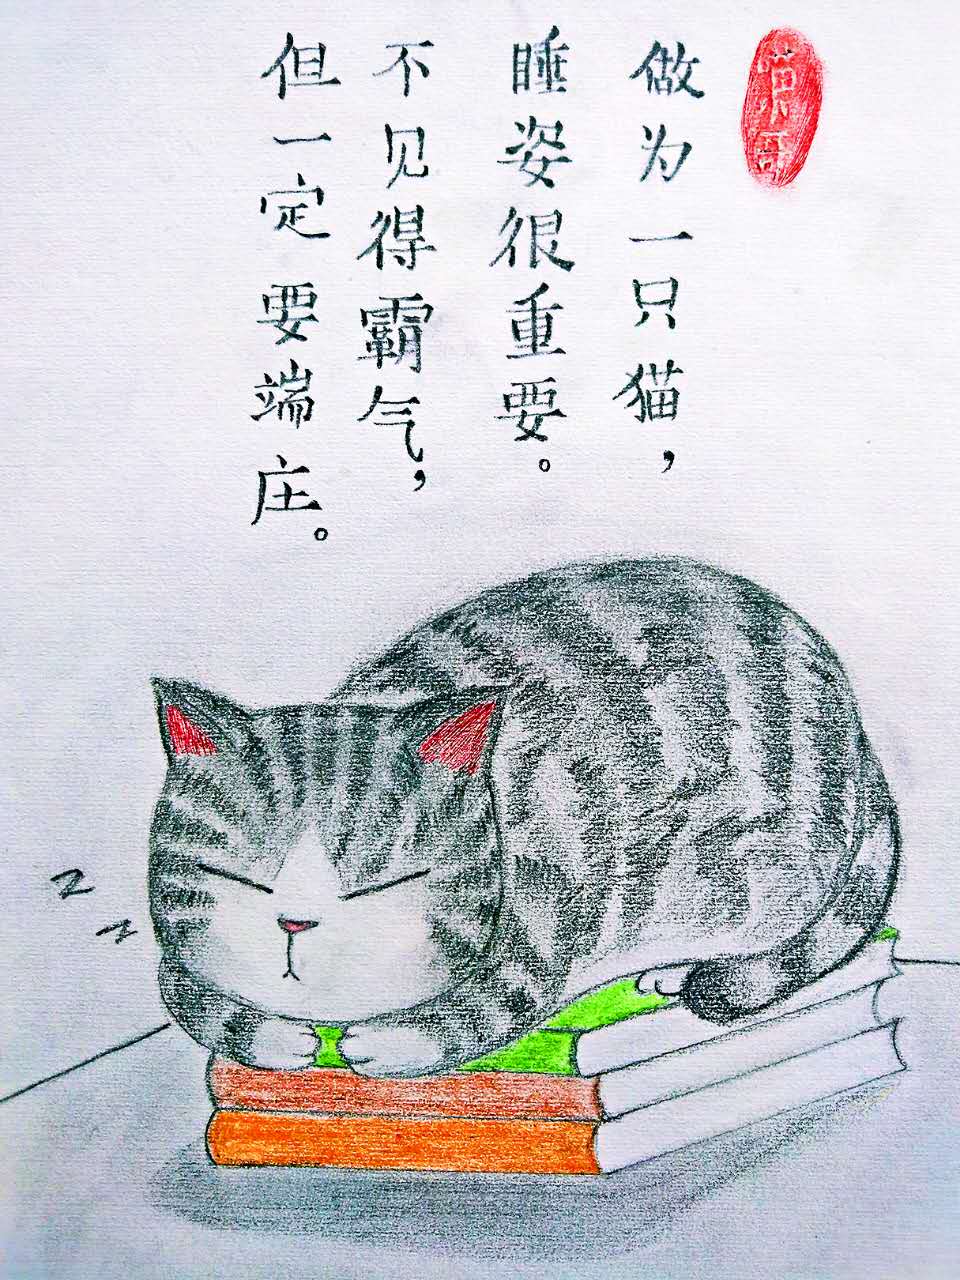 做为一只猫，
睡姿很重要。
不见得霸气，
但一定要端庄。
z
z